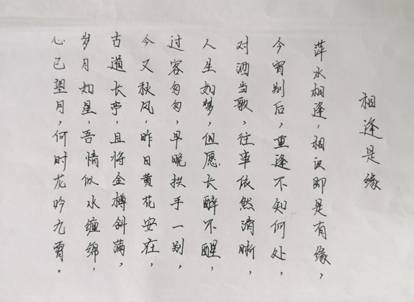 相逢是缘
萍水相逢，相识即是有缘，
今宵别后，重逢不知何处，
对酒当歌，往事依然清晰，
人生如梦，但愿长醉不醒，
过客匆匆，早晚拱手一别，
今又秋风，昨日黄花安在，
古道长亭，且将金樽斟满，
岁月如星，吾情似水缠绵，
心已望月，何时龙吟九霄。